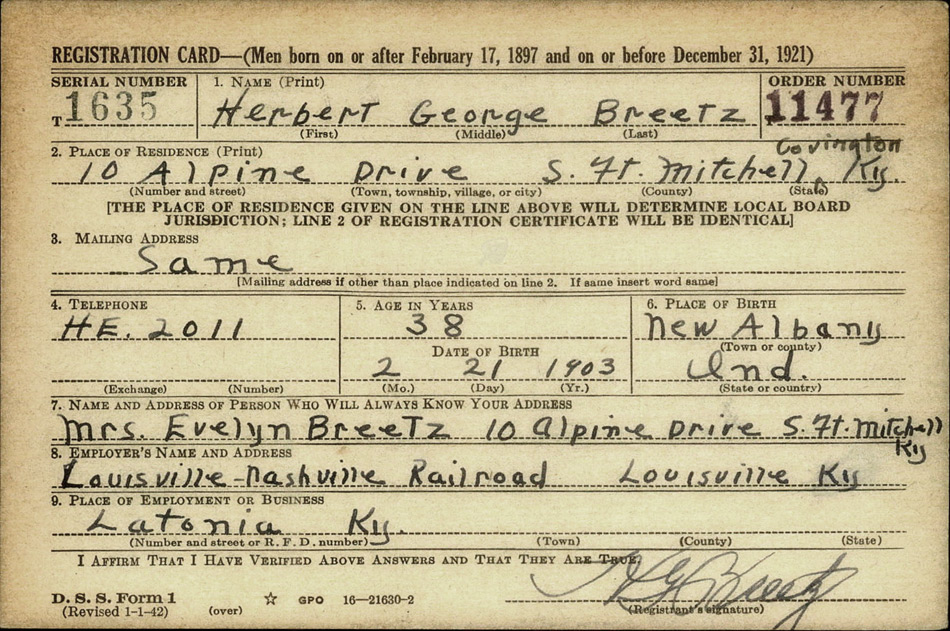 REGISTRATION CARD—(Men born on or after February 17, 1897 and on or before December 31, 1921)
SERIAL NUMBER 1. NAME (Print) ORDER NUMBER
T 1635 Herbert George Breetz 11477
(First) (Middle) (Last)
Covington
2. PLACE OF RESIDENCE (Print)
10 Alpine Drive S. Ft. Mitchell, Ky.
(Number and street) (Town, township, village, or city) (County) (State)
[THE PLACE OF RESIDENCE GIVEN ON THE LINE ABOVE WILL DETERMINE LOCAL BOARD
JURISDICTION; LINE 2 OF REGISTRATION CERTIFICATE WILL BE IDENTICAL]
3. MAILING ADDRESS
Same
[Mailing address if other than place indicated on line 2. If same insert word same]
4. TELEPHONE 5. AGE IN YEARS 6. PLACE OF BIRTH
HE. 2011 38 New Albany
DATE OF BIRTH (Town or county)
2 21 1903 Ind.
(Exchange) (Number) (Mo.) (Day) (Yr.) (State or country)
7. NAME AND ADDRESS OF PERSON WHO WILL ALWAYS KNOW YOUR ADDRESS
Mrs. Evelyn Breetz 10 Alpine Drive S. Ft. Mitchell
Ky
8. EMPLOYER'S NAME AND ADDRESS
Louisville-Nashville Railroad Louisville Ky
9. PLACE OF EMPLOYMENT OR BUSINESS
Latonia Ky.
(Number and street or R. F. D. number) (Town) (County) (State)
I AFFIRM THAT I HAVE VERIFIED ABOVE ANSWERS AND THAT THEY ARE TRUE.
H G Breetz
D. S. S. Form 1
(Revised 1-1-42) (over) ☆ GPO 16—21630-2 (Registrant's signature)